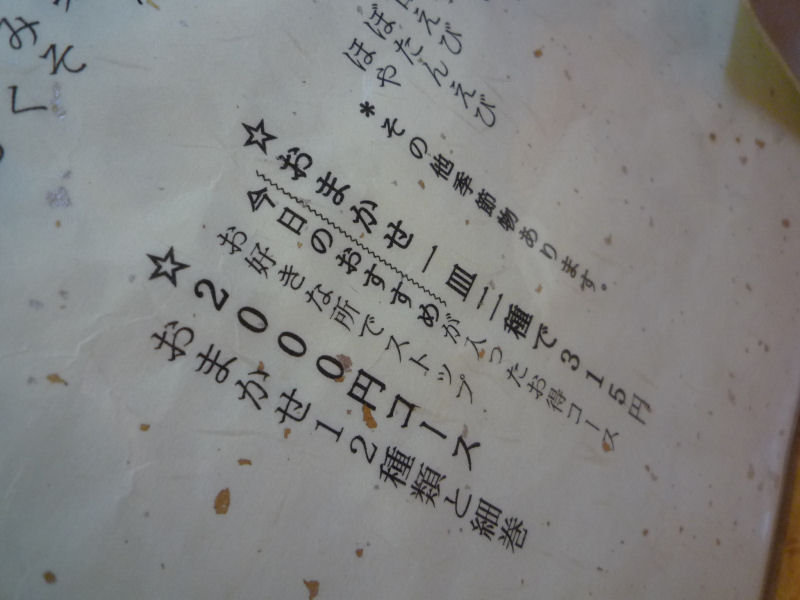 えび
ぼたんえび
ほや
*その他季節物あります。
☆おまかせ一皿二種で315円
今日のおすすめが入ったお得コース
お好きな所でストップ
☆2000円コース
おまかせ12種類と細巻